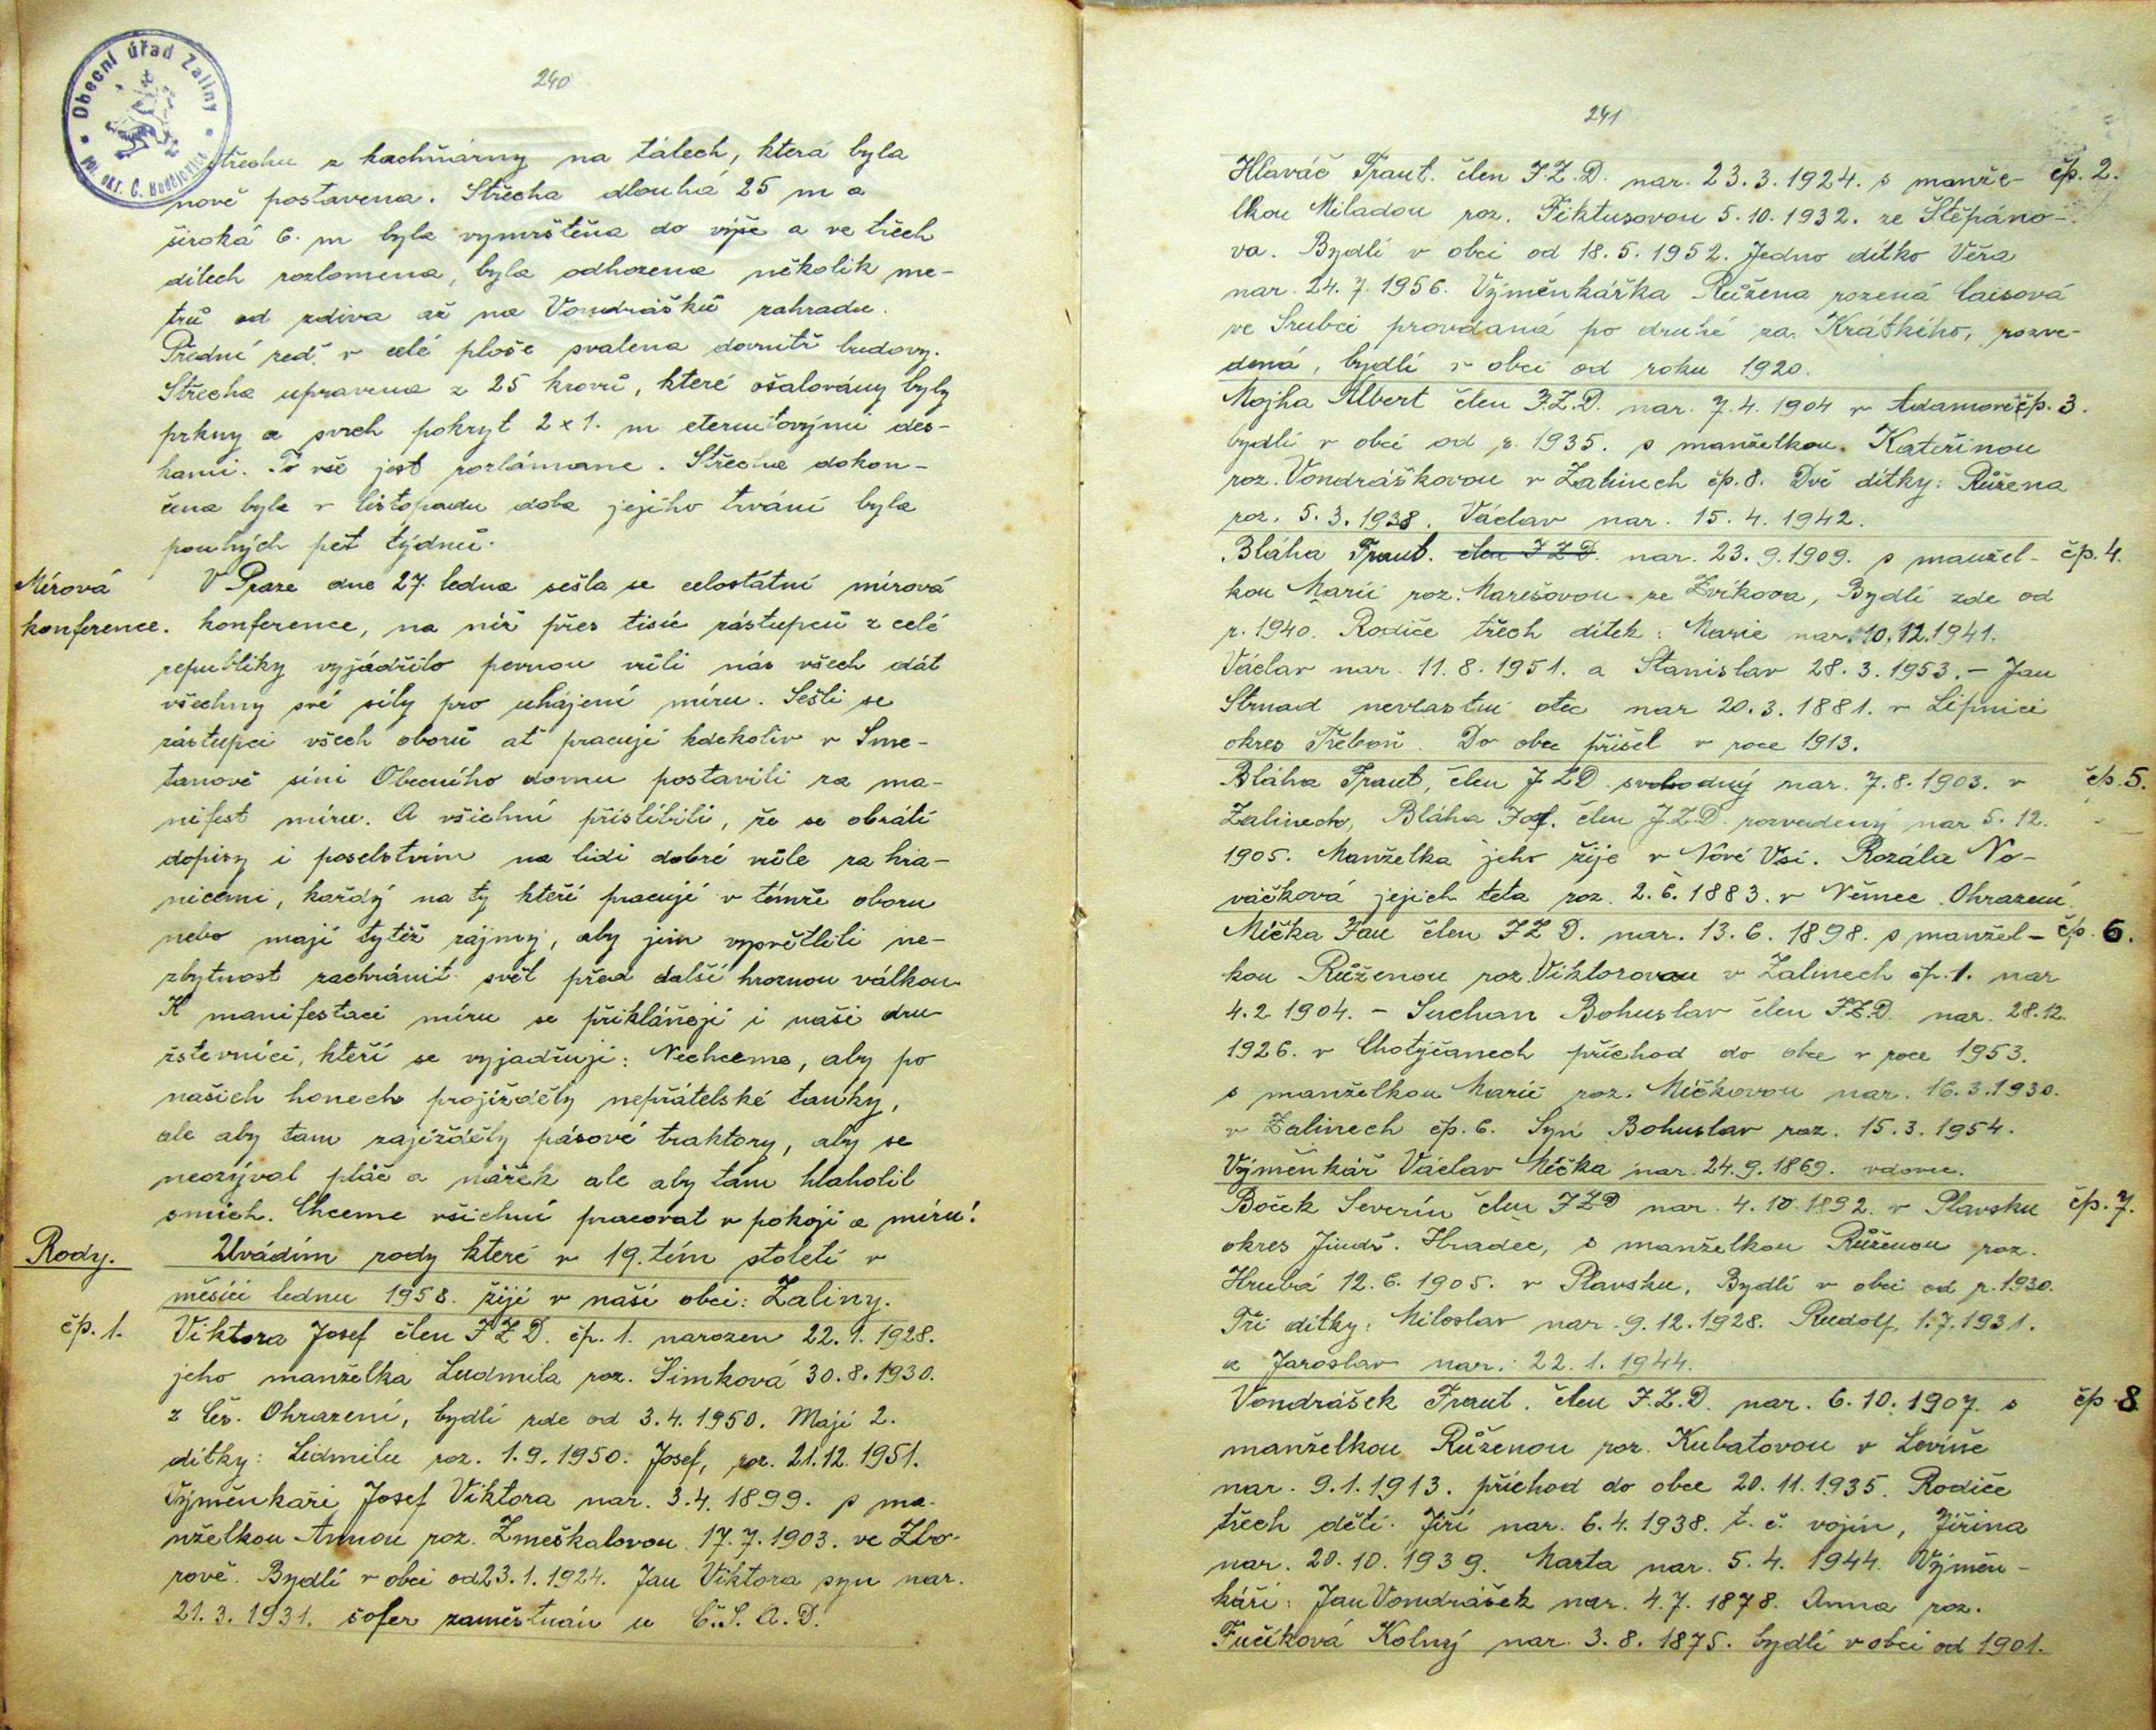 Obecní úřad Zaliny
pol. okr. Č. Budějovice
240
střechu z kachňárny na tálech, která byla
nově postavena. Střecha dlouhá 25 m a
široká 6. m byla vymrštěna do výše a ve třech
dílech rozlomena, byla odhozena několik me-
trů od zdiva až na Vondrášků zahradu.
Přední zeď v celé ploše svalena dovnitř budovy.
Střecha upravena z 25 krovů, které ošalovány byly
prkny a svrch pokryt 2x1. m eternitovými des-
kami. To vše jest rozlámane. Střecha dokon-
čena byla v listopadu doba jejího trvání byla
pouhých pět týdnů.
Mírová V Praze dne 27. ledna sešla se celostátní mírová
konference. konference, na níž přes tisíc zástupců z celé
republiky vyjádřilo pevnou vůli nás všech dát
všechny své síly pro uhájení míru. Sešli se
zástupci všech oborů ať pracují kdekoliv v Sme-
tanově síni Obecního domu postavili za ma-
nifest míru. A všichni přislíbili, že se obrátí
dopisy i poselstvím na lidi dobré vůle za hra-
nicemi, každý na ty kteří pracují v témže oboru
nebo mají tytéž zájmy, aby jim vysvětlili ne-
zbytnost zachránit svět před další hroznou válkou.
K manifestaci míru se přiklánějí i naši dru-
žstevníci, kteří se vyjadřují: Nechceme, aby po
našich honech projížděly nepřátelské tanky,
ale aby tam zajížděly pásové traktory, aby se
neozýval pláč a nářek ale aby tam hlaholil
smích. Chceme všichni pracovat v pokoji a míru!
Rody. Uvádím rody které v 19. tém století v
měsíci lednu 1958. žijí v naší obci: Zaliny.
čp. 1. Viktora Josef člen JZD. čp. 1. narozen 22. 1. 1928.
jeho manželka Ludmila roz. Šimková 30. 8. 1930.
z Čes. Ohrazení, bydlí zde od 3. 4. 1950. Mají 2.
dítky: Lidmilu roz. 1. 9. 1950. Josef, roz. 21. 12. 1951.
Výměnkáři Josef Viktora nar. 3. 4. 1899. s ma-
nželkou Annou roz. Zmeškalovou 17. 7. 1903. ve Zbo-
rově. Bydlí v obci od 23. 1. 1924. Jan Viktora syn nar.
21. 3. 1931. šofer zaměstnán u Č.S.A.D.
241
Hlaváč Frant. člen J.Z.D. nar. 23. 3. 1924. s manže- čp. 2.
lkou Miladou roz. Fiktusovou 5. 10. 1932. ze Štěpáno-
va. Bydlí v obci od 18. 5. 1952. Jedno dítko Věra
nar. 24. 7. 1956. Výměnkářka Růžena rozená Caisová
ve Srubci provdaná po druhé za Krátkého, rozve-
dená, bydlí v obci od roku 1920.
Mojha Albert člen J.Z.D. nar. 7. 4. 1904 v Adamově čp. 3.
bydlí v obci od r. 1935. s manželkou Kateřinou
roz. Vondráškovou v Zalinech čp. 8. Dvě dítky: Růžena
roz. 5. 3. 1938. Václav nar. 15. 4. 1942.
Bláha Frant. člen JZD. nar. 23. 9. 1909. s manžel- čp. 4.
kou Marií roz. Marešovou ze Zvíkova, Bydlí zde od
r. 1940. Rodiče třech dítek: Marie nar. 10. 12. 1941.
Václav nar. 11. 8. 1951. a Stanislav 28. 3. 1953. - Jan
Strnad nevlastní otec nar 20. 3. 1881. v Lipnici
okres Třeboň. Do obce přišel v roce 1913.
Bláha Frant, člen JZD. svobodný nar. 7. 8. 1903. v čp. 5.
Zalinech, Bláha Jos. člen J.Z.D. rozvedený nar 5. 12.
1905. Manželka jeho žije v Nové Vsi. Rozálie No-
váčková jejich teta roz. 2. 6. 1883. v Němec. Ohrazení.
Mička Jan člen JZD. nar. 13. 6. 1898. s manžel- čp. 6.
kou Růženou roz. Viktorovou v Zalinech čp. 1. nar
4. 2. 1904. - Suchan Bohuslav člen JZ.D. nar. 28. 12.
1926. v Chotýčanech příchod do obce v roce 1953.
s manželkou Marií roz. Mičkovou nar. 16. 3. 1930.
v Zalinech čp. 6. Syn Bohuslav roz. 15. 3. 1954.
Výměnkář Václav Mička nar. 24. 9. 1869. vdovec.
Boček Severín člen JZD nar. 4. 10. 1892. v Plavsku čp. 7.
okres Jindř. Hradec, s manželkou Růženou roz.
Hrubá 12. 6. 1905. v Plavsku, Bydlí v obci od r. 1930.
Tři dítky: Miloslav nar. 9. 12. 1928. Rudolf, 1. 7. 1931.
a Jaroslav nar.: 22. 1. 1944.
Vondrášek Frant. člen J.Z.D. nar. 6. 10. 1907. s čp. 8
manželkou Růženou roz. Kubatovou v Levíně
nar. 9. 1. 1913. příchod do obce 20. 11. 1935. Rodiče
třech dětí. Jiří nar. 6. 4. 1938. t. č. vojín, Jiřina
nar. 20. 10. 1939. Marta nar. 5. 4. 1944. Výměn-
káři: Jan Vondrášek nar. 4. 7. 1878. Anna roz.
Fučíková Kolný nar. 3. 8. 1875. bydlí v obci od 1901.